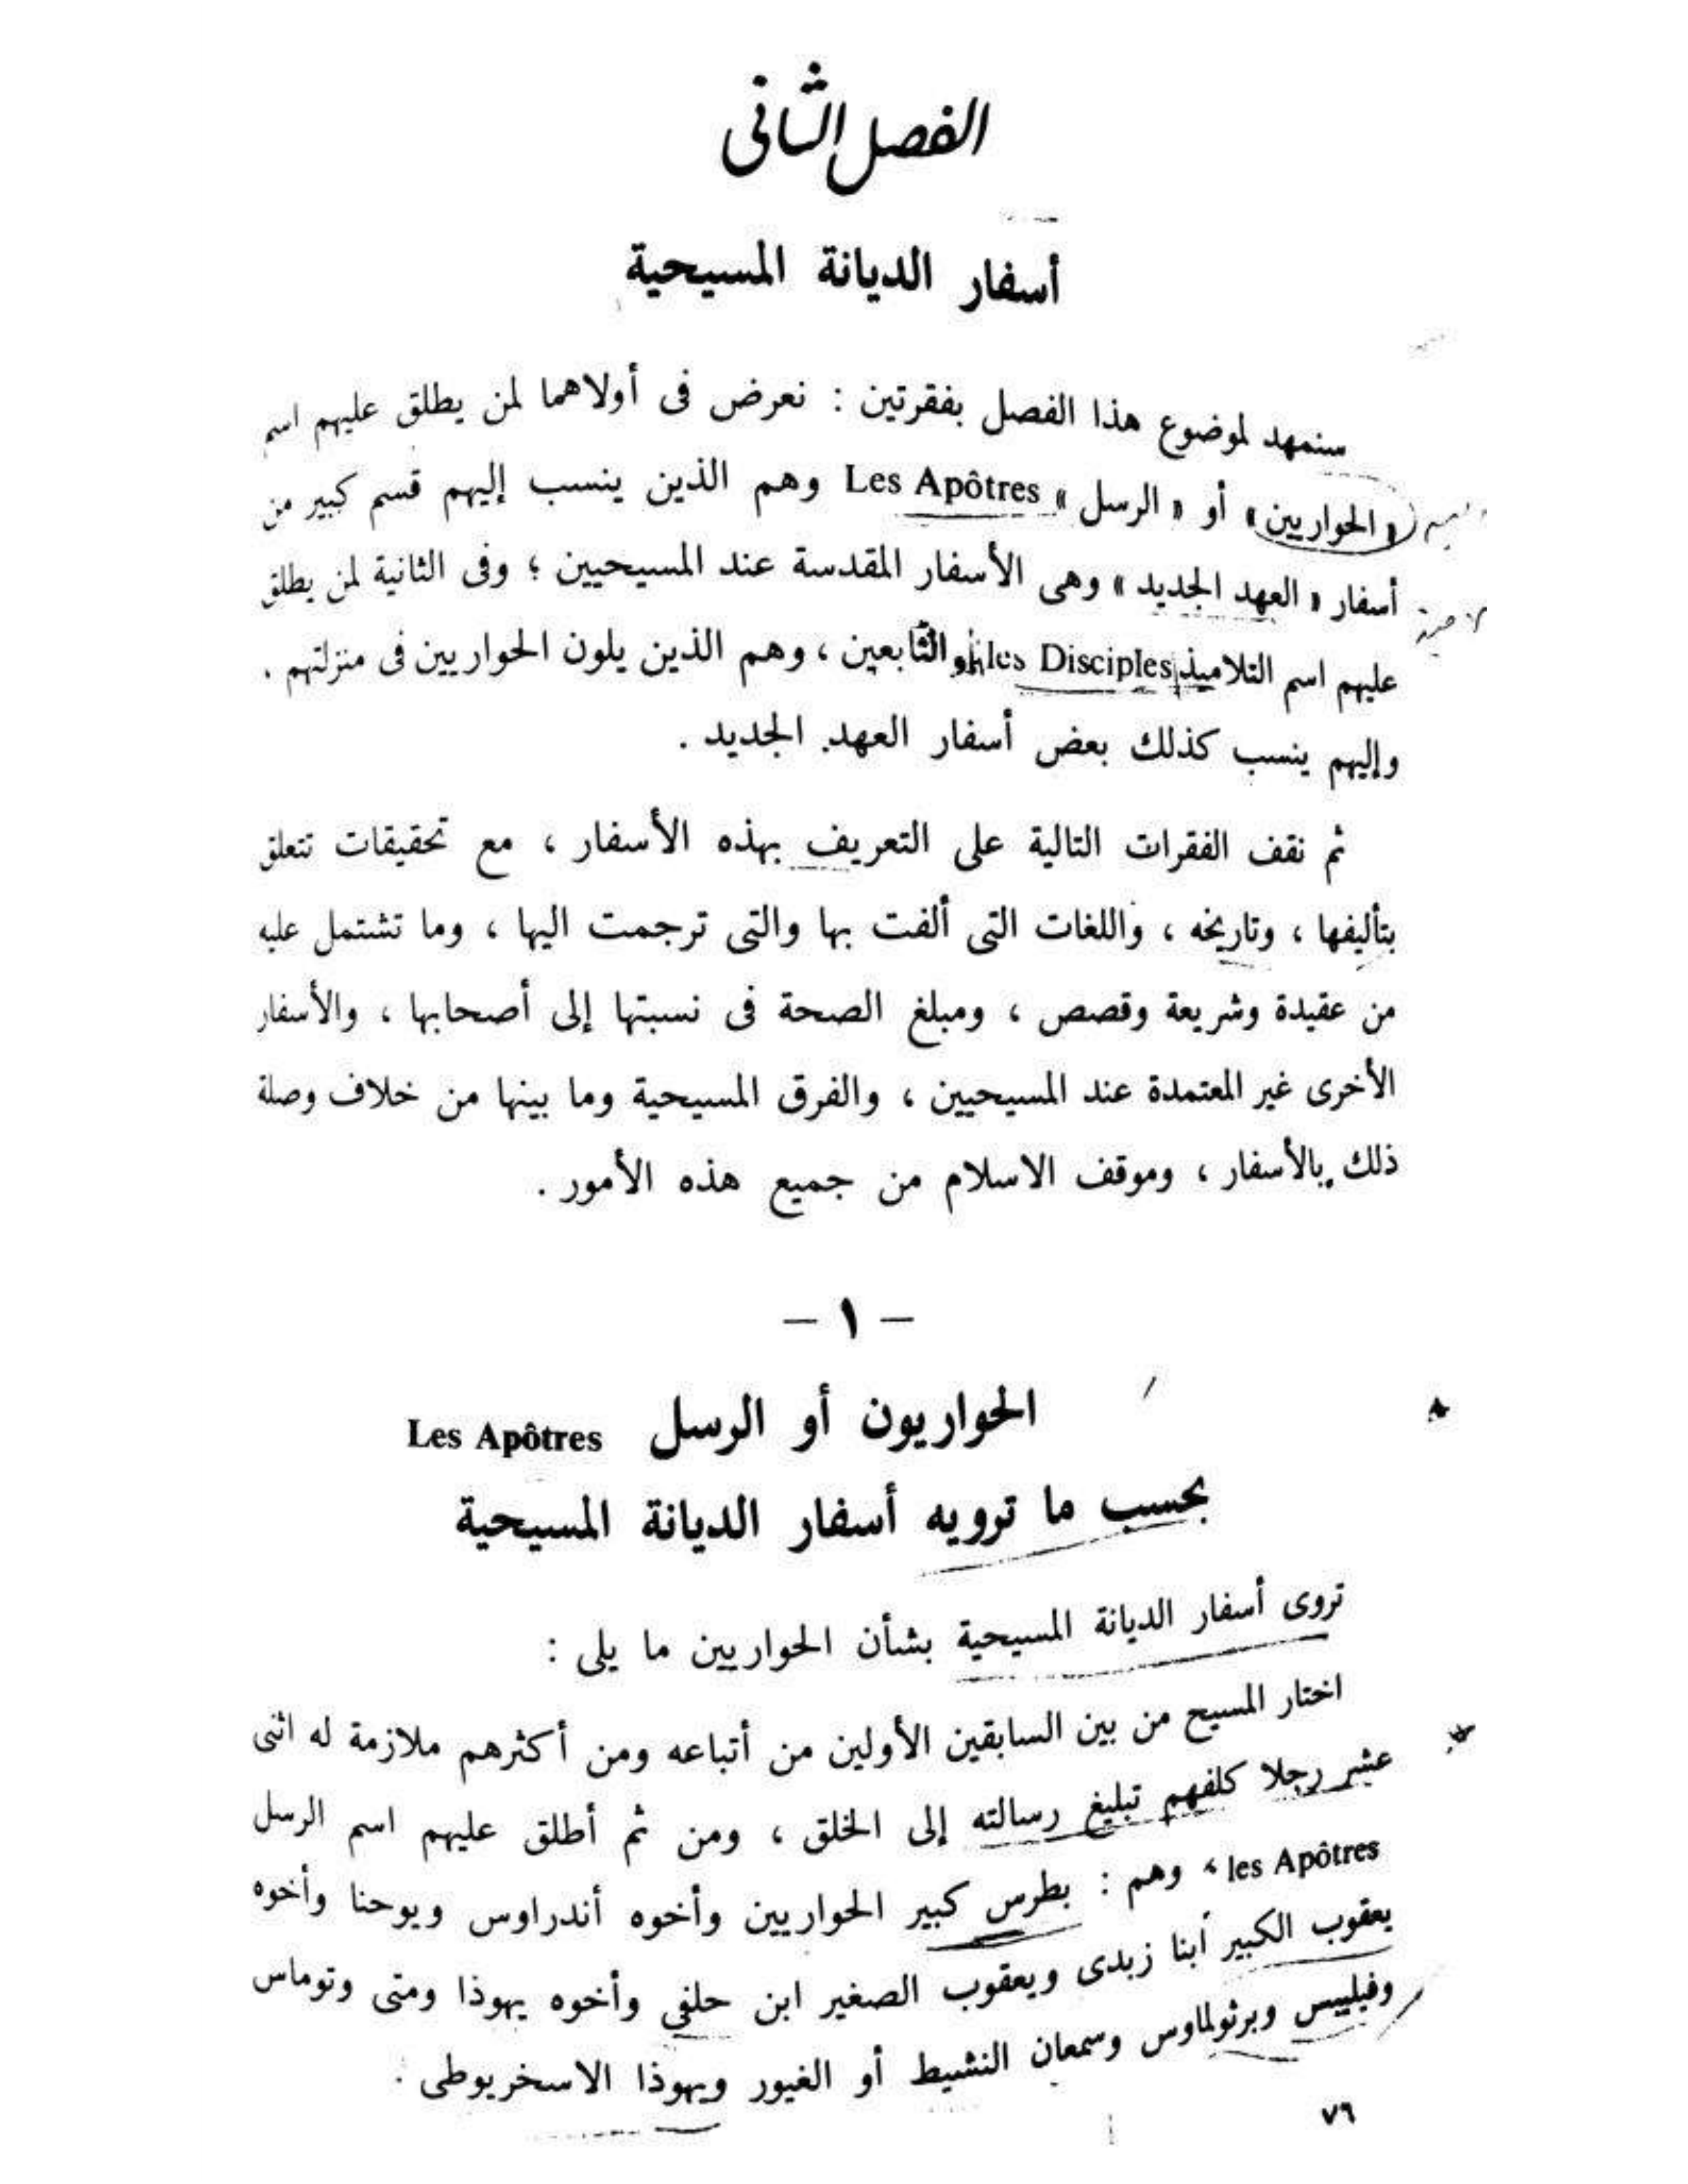 الفصل الثانى
أسفار الديانة المسيحية
سنمهد لموضوع هذا الفصل بفقرتين : نعرض فى أولاهما لمن يطلق عليهم اسم
« الحواريين » أو « الرسل » Les Apôtres وهم الذين ينسب إليهم قسم كبير من
أسفار « العهد الجديد » وهى الأسفار المقدسة عند المسيحيين ؛ وفى الثانية لمن يطلق
عليهم اسم التلاميذ les Disciples أو التابعين ، وهم الذين يلون الحواريين فى منزلتهم .
وإليهم ينسب كذلك بعض أسفار العهد الجديد .
ثم نقف الفقرات التالية على التعريف بهذه الأسفار ، مع تحقيقات تتعلق
بتأليفها ، وتاريخه ، واللغات التى ألفت بها والتى ترجمت اليها ، وما تشتمل عليه
من عقيدة وشريعة وقصص ، ومبلغ الصحة فى نسبتها إلى أصحابها ، والأسفار
الأخرى غير المعتمدة عند المسيحيين ، والفرق المسيحية وما بينها من خلاف وصلة
ذلك بالأسفار ، وموقف الاسلام من جميع هذه الأمور .
– ١ –
الحواريون أو الرسل Les Apôtres
بحسب ما ترويه أسفار الديانة المسيحية
تروى أسفار الديانة المسيحية بشأن الحواريين ما يلى :
اختار المسيح من بين السابقين الأولين من أتباعه ومن أكثرهم ملازمة له اثنى
عشر رجلا كلفهم تبليغ رسالته إلى الخلق ، ومن ثم أطلق عليهم اسم الرسل
les Apôtres ، وهم : بطرس كبير الحواريين وأخوه أندراوس ويوحنا وأخوه
يعقوب الكبير أبنا زبدى ويعقوب الصغير ابن حلفي وأخوه يهوذا ومتى وتوماس
وفيلبيس وبرثولماوس وسمعان النشيط أو الغيور ويهوذا الاسخريوطى .
٧٦